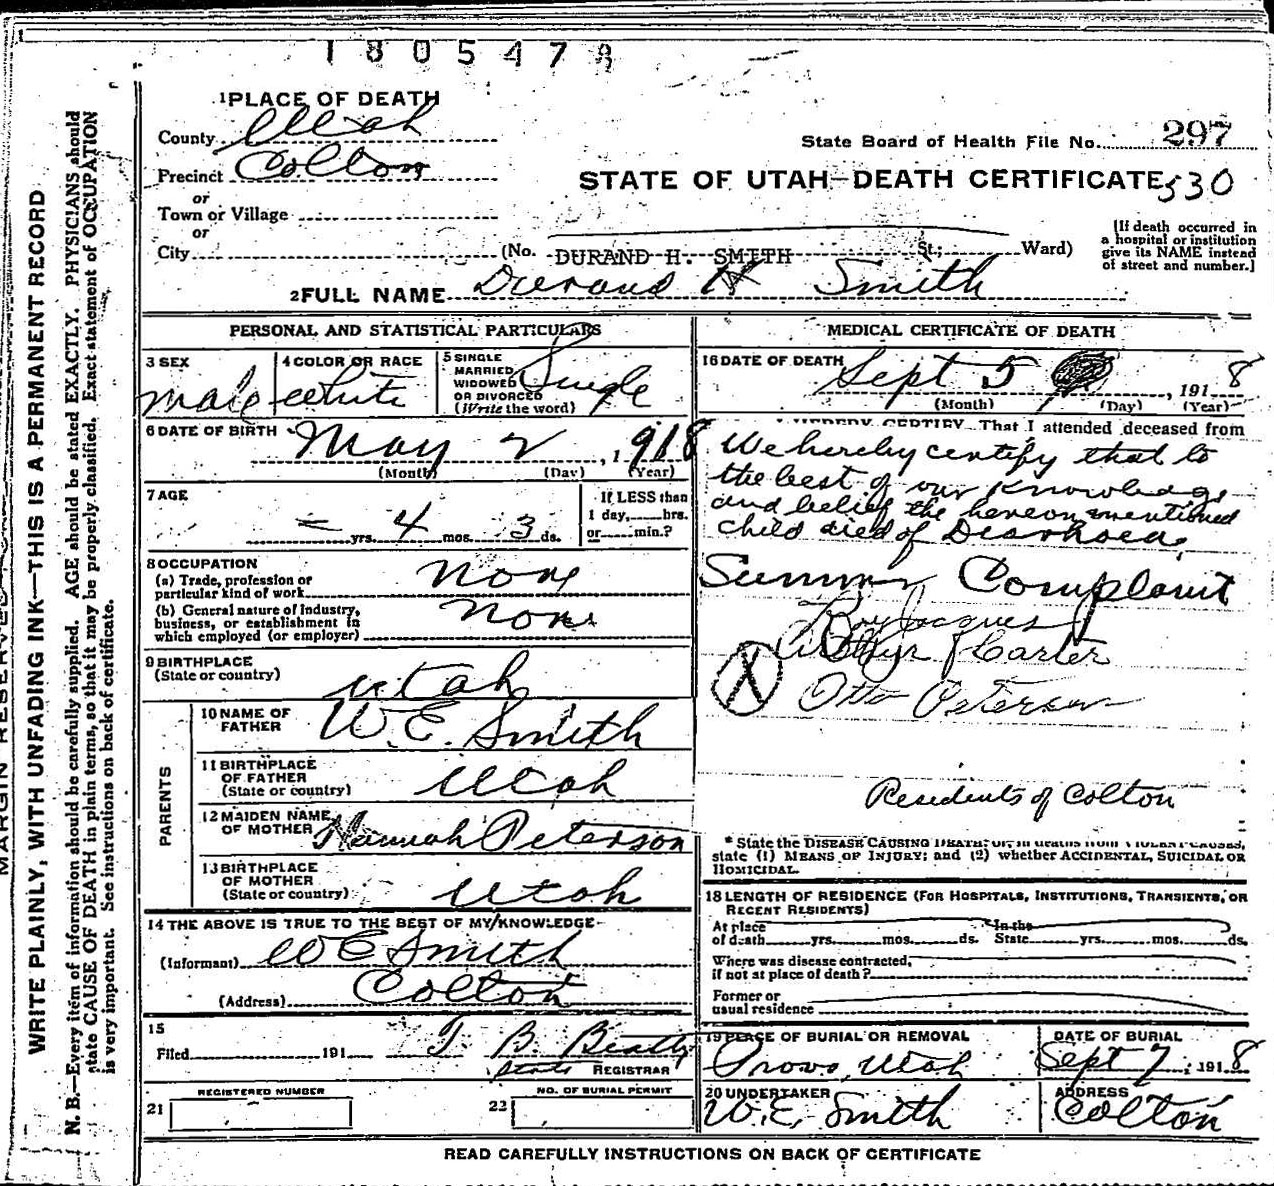 1805478
1 PLACE OF DEATH
County Utah
State Board of Health File No. 297
Precinct Colton
STATE OF UTAH—DEATH CERTIFICATE 530
or
Town or Village
or
City (No. DURAND H. SMITH St.; Ward)
[If death occurred in
a hospital or institution
give its NAME instead
of street and number.]
2 FULL NAME Durand H Smith
PERSONAL AND STATISTICAL PARTICULARS
3 SEX
male
4 COLOR OR RACE
white
5 SINGLE
MARRIED
WIDOWED
OR DIVORCED
(Write the word)
Single
6 DATE OF BIRTH May 2, 1918
(Month) (Day) (Year)
7 AGE
– yrs. 4 mos. 3 ds.
If LESS than
1 day, hrs.
or min.?
8 OCCUPATION
(a) Trade, profession or
particular kind of work none
(b) General nature of industry,
business, or establishment in
which employed (or employer) none
9 BIRTHPLACE
(State or country) Utah
PARENTS
10 NAME OF
FATHER W. E. Smith
11 BIRTHPLACE
OF FATHER
(State or country) Utah
12 MAIDEN NAME
OF MOTHER Hannah Peterson
13 BIRTHPLACE
OF MOTHER
(State or country) Utah
14 THE ABOVE IS TRUE TO THE BEST OF MY KNOWLEDGE
(Informant) W E Smith
(Address) Colton
15
Filed 191 T. B. Beatty
State REGISTRAR
21 REGISTERED NUMBER
22 NO. OF BURIAL PERMIT
MEDICAL CERTIFICATE OF DEATH
16 DATE OF DEATH Sept 5, 1918
(Month) (Day) (Year)
HEREBY CERTIFY That I attended deceased from
We hereby certify that to
the best of our knowledge
and belief the hereon mentioned
child died of Diarhoea,
Summer Complaint
Roy Jacques
Arthur J Carter
X Otto Peterson
Residents of Colton
* State the DISEASE CAUSING DEATH; or, in deaths from VIOLENT CAUSES,
state (1) MEANS OF INJURY; and (2) whether ACCIDENTAL, SUICIDAL OR
HOMICIDAL.
18 LENGTH OF RESIDENCE (FOR HOSPITALS, INSTITUTIONS, TRANSIENTS, OR
RECENT RESIDENTS)
At place In the
of death yrs. mos. ds. State yrs. mos. ds.
Where was disease contracted,
if not at place of death?
Former or
usual residence
19 PLACE OF BURIAL OR REMOVAL
Provo, Utah
DATE OF BURIAL
Sept 7, 1918
20 UNDERTAKER
W. E. Smith
ADDRESS
Colton
READ CAREFULLY INSTRUCTIONS ON BACK OF CERTIFICATE
MARGIN RESERVED
WRITE PLAINLY, WITH UNFADING INK—THIS IS A PERMANENT RECORD
N. B.—Every item of information should be carefully supplied. AGE should be stated EXACTLY. PHYSICIANS should
state CAUSE OF DEATH in plain terms, so that it may be properly classified. Exact statement of OCCUPATION
is very important. See instructions on back of certificate.